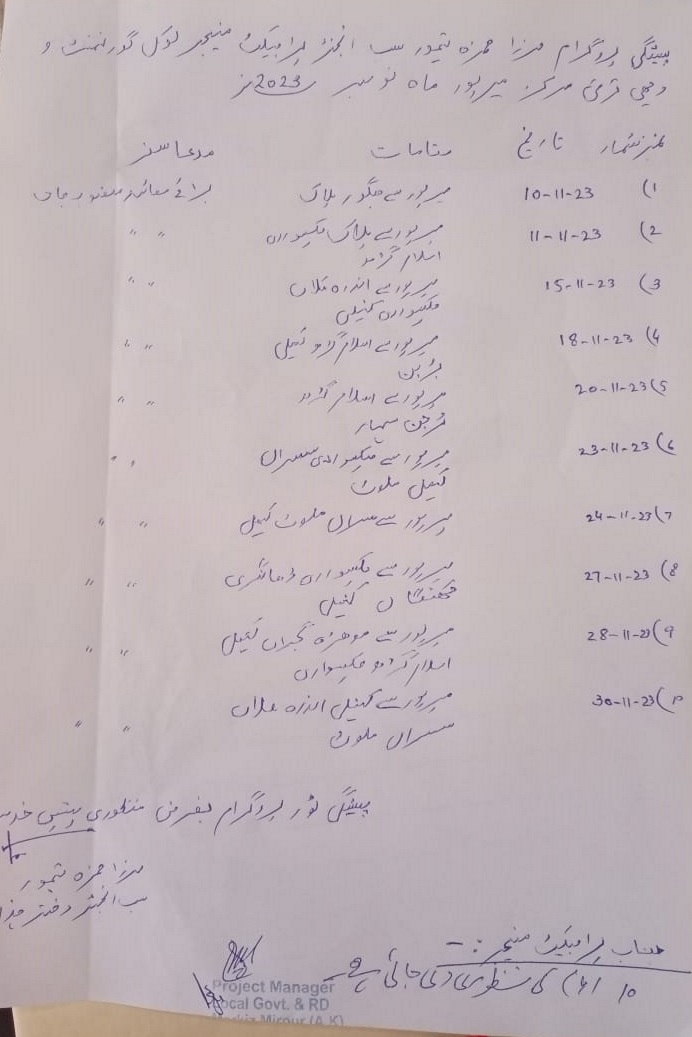 پیشگی پروگرام مرزا حمزہ تیمور سب انجنئر پراجیکٹ منیجر لوکل گورنمنٹ و
دیہی ترقی مرکز میرپور ماہ نومبر 2023ء
نمبر شمار تاریخ مقامات مدعا سفر
1) 10-11-23 میرپور سے جنگور پلاک برائے معائنہ منصوبہ جات
2) 11-11-23 میرپور سے پلاک چکسواری " "
اسلام گڑھ
3) 15-11-23 میرپور سے اندرہ کلاں " "
چکسواری کنیلی
4) 18-11-23 میرپور سے اسلام گڑھ کنیلی " "
بڑبن
5) 20-11-23 میرپور سے اسلام گڑھ " "
6) 23-11-23 میرپور سے چکسواری سسرال " "
کنیلی ملوٹ
7) 24-11-23 میرپور سے سسرال ملوٹ کنیلی " "
8) 27-11-23 میرپور سے چکسواری ڈھانگری " "
کنیلی
9) 28-11-23 میرپور سے موہڑہ کنیلی " "
اسلام گڑھ چکسواری
10) 30-11-23 میرپور سے کنیلی اندرہ کلاں " "
سسرال ملوٹ
پیشگی ٹور پروگرام بغرض منظوری پیش خدمت
مرزا حمزہ تیمور
سب انجنئر دفتر ہذا
جناب پراجیکٹ منیجر :-
کی منظوری دی جاتی ہے
Project Manager
Local Govt. & RD
Markiz Mirpur (A.K)